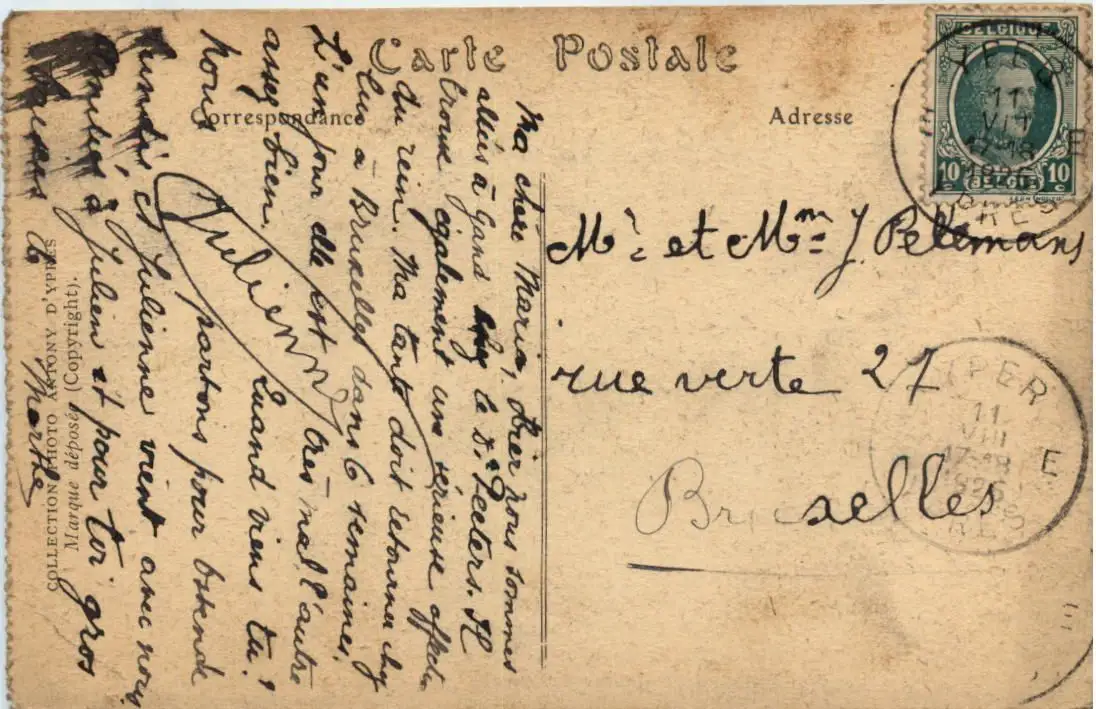 Carte Postale
Correspondance
Adresse
Ma chère Maria, Hier nous sommes
allés à Gand chez le Dr Peeters. Il
trouve également une sérieuse affecti
du rein. Ma tante doit retourner chez
lui à Bruxelles dans 6 semaines.
L'un jour elle est très mal, l'autre
assez bien. Quand viens tu?
Nous partons pour Ostende
lundi et Julienne vient avec nous.
à Julien et pour toi gros
baisers de
Marthe
Julienne
COLLECTION PHOTO ANTONY D'YPRES
Marque déposée (Copyright).
BELGIQUE
10 c
10 c
BELGIË
YPER
11
VIII
17-18
1926
E
YPRES
Mr. et Mme J. Pelemans
rue verte 27
Bruxelles
YPER
11
VIII
17-18
1926
E
YPRES